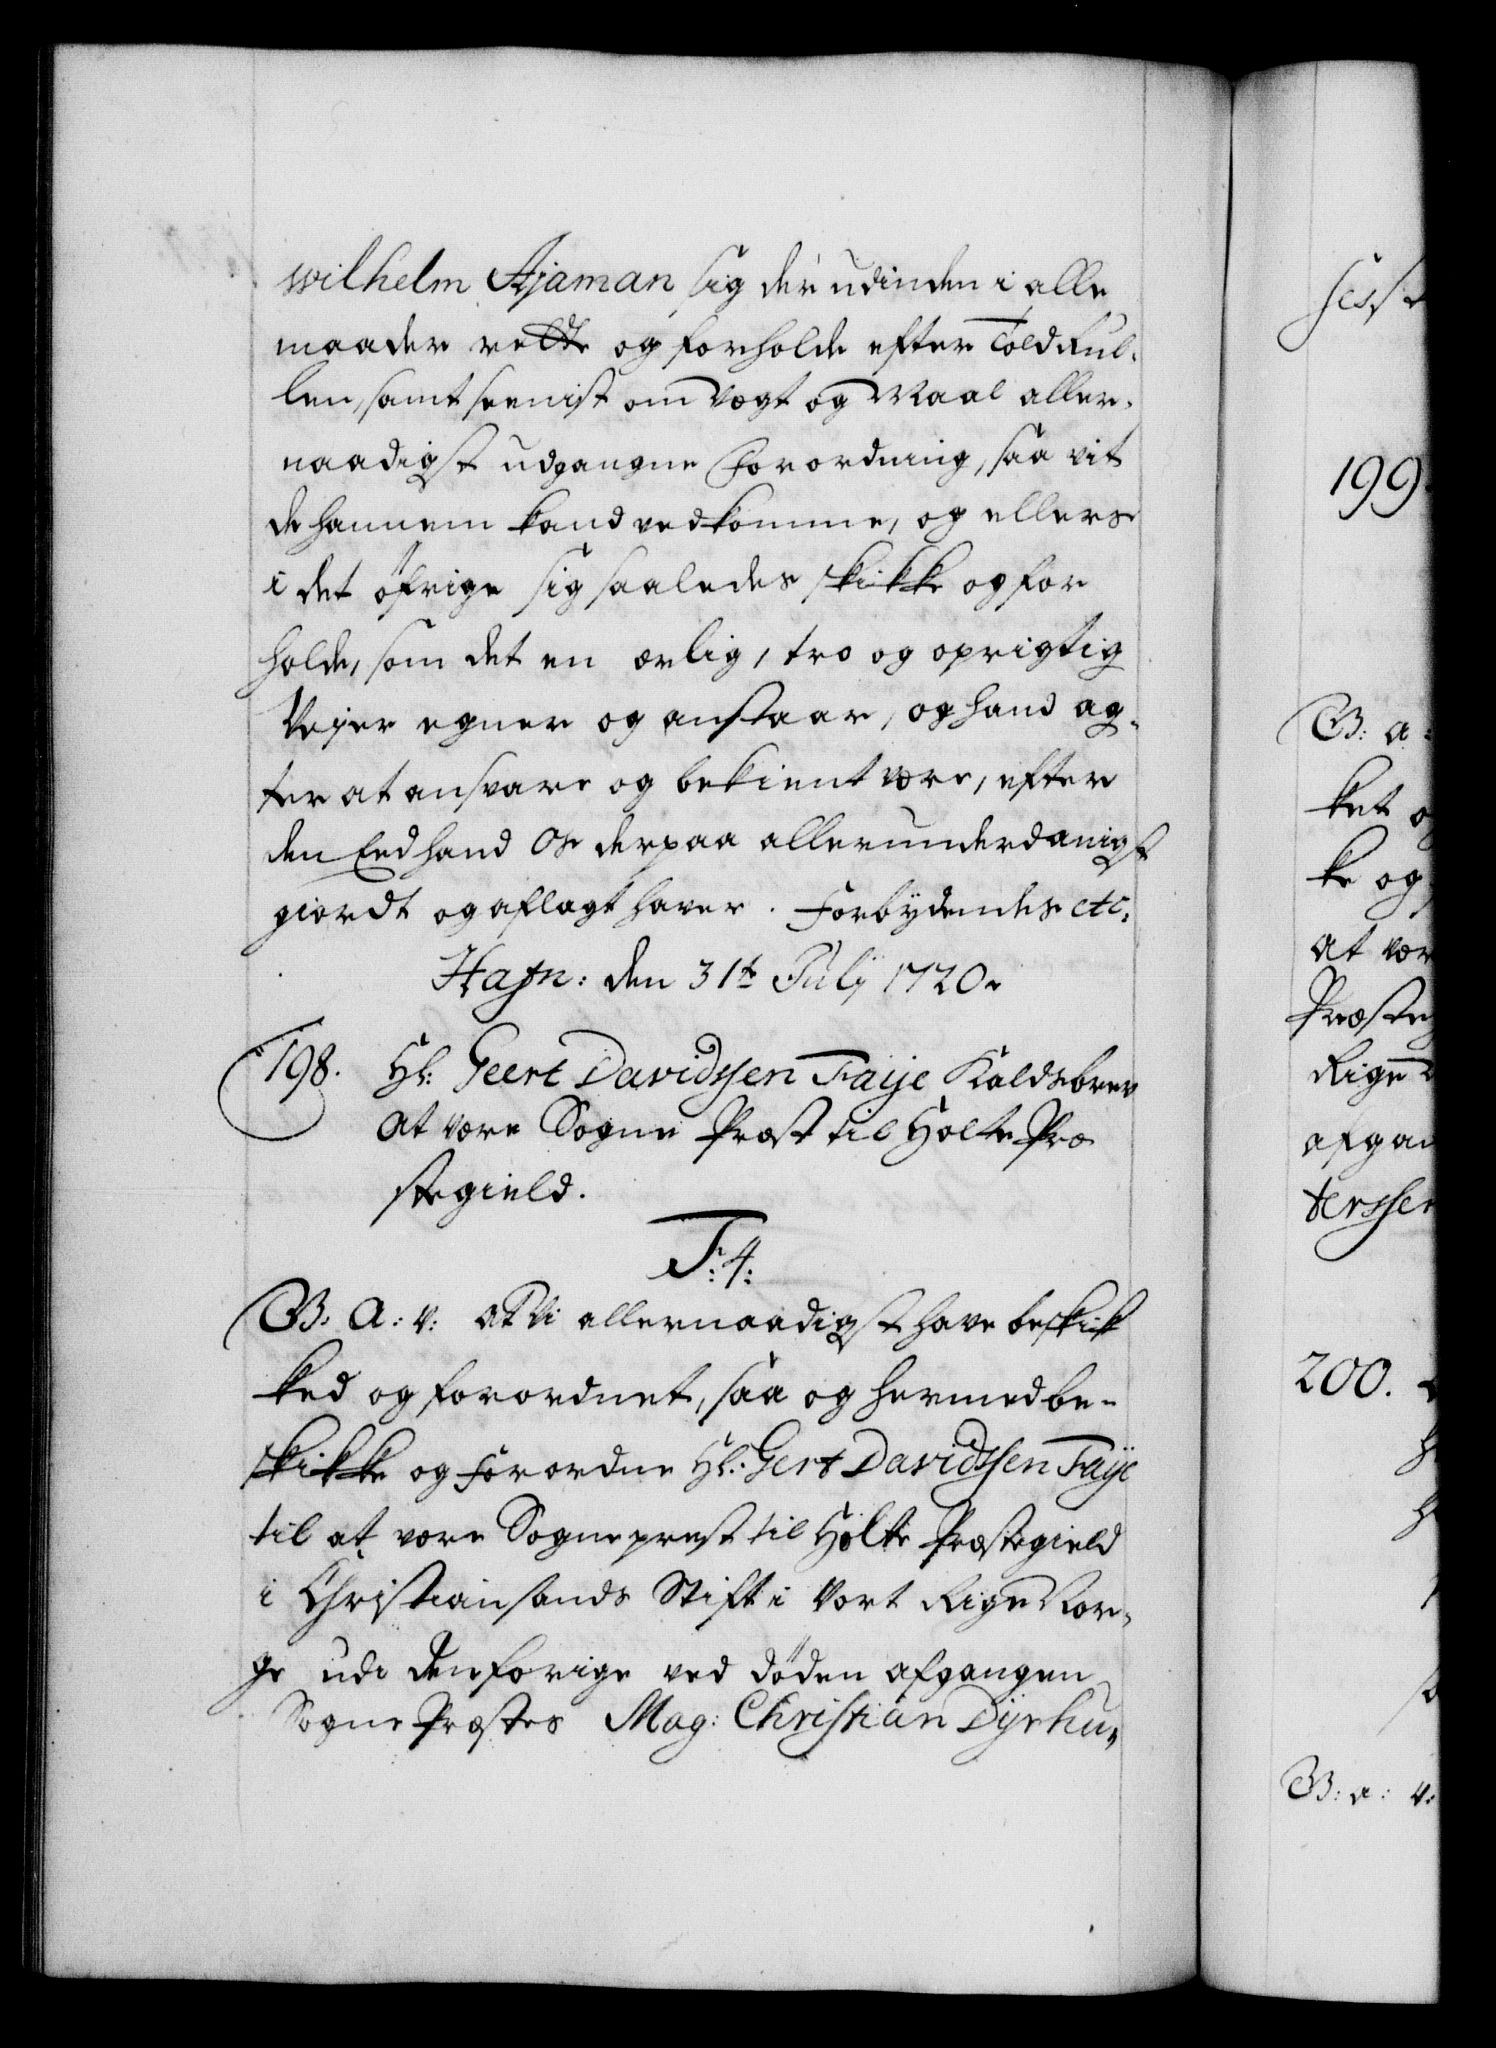 Wilhelm Ajaman sig der udinden i alle
maader rette og forholde efter Toldrul-
len, samt seenist om Vegt og Maal aller-
naadigst udgangne Forordning, saa vit
de hannem kand vedkomme, og ellers
i det øfrige sig saaledes skikke og for
holde, som det en ærlig, tro og oprigtig
Vejer egner og anstaar, og hand ag-
ter at ansvare og bekient være, efter
den Eed hand Os derpaa allerunderdanigst
giordt og aflagt haver. Forbydendes etc:
Hafn: den 31te Julÿ 1720.
198. Hl: Geert Davidssen Faÿe Kaldsbrev
at være Sogne Præst til Holte Præ
stegield.
F: 4:
G: A: V: at Vi allernaadigst have beskik
ked og forordnet, saa og hermed be-
skikke og forordne Hl: Gert Davidssen Faÿe
til at være Sogneprest til Holte Præstegield
i Christiansands Stift i Vort Rige Nor-
ge udi den forige ved døden afgangen
Sogne Præstes Mag: Christian Dÿrhu-
199.
G: a:
ket
ke og
at vær
Præste
Rige
terssen
200.
G: a: V: